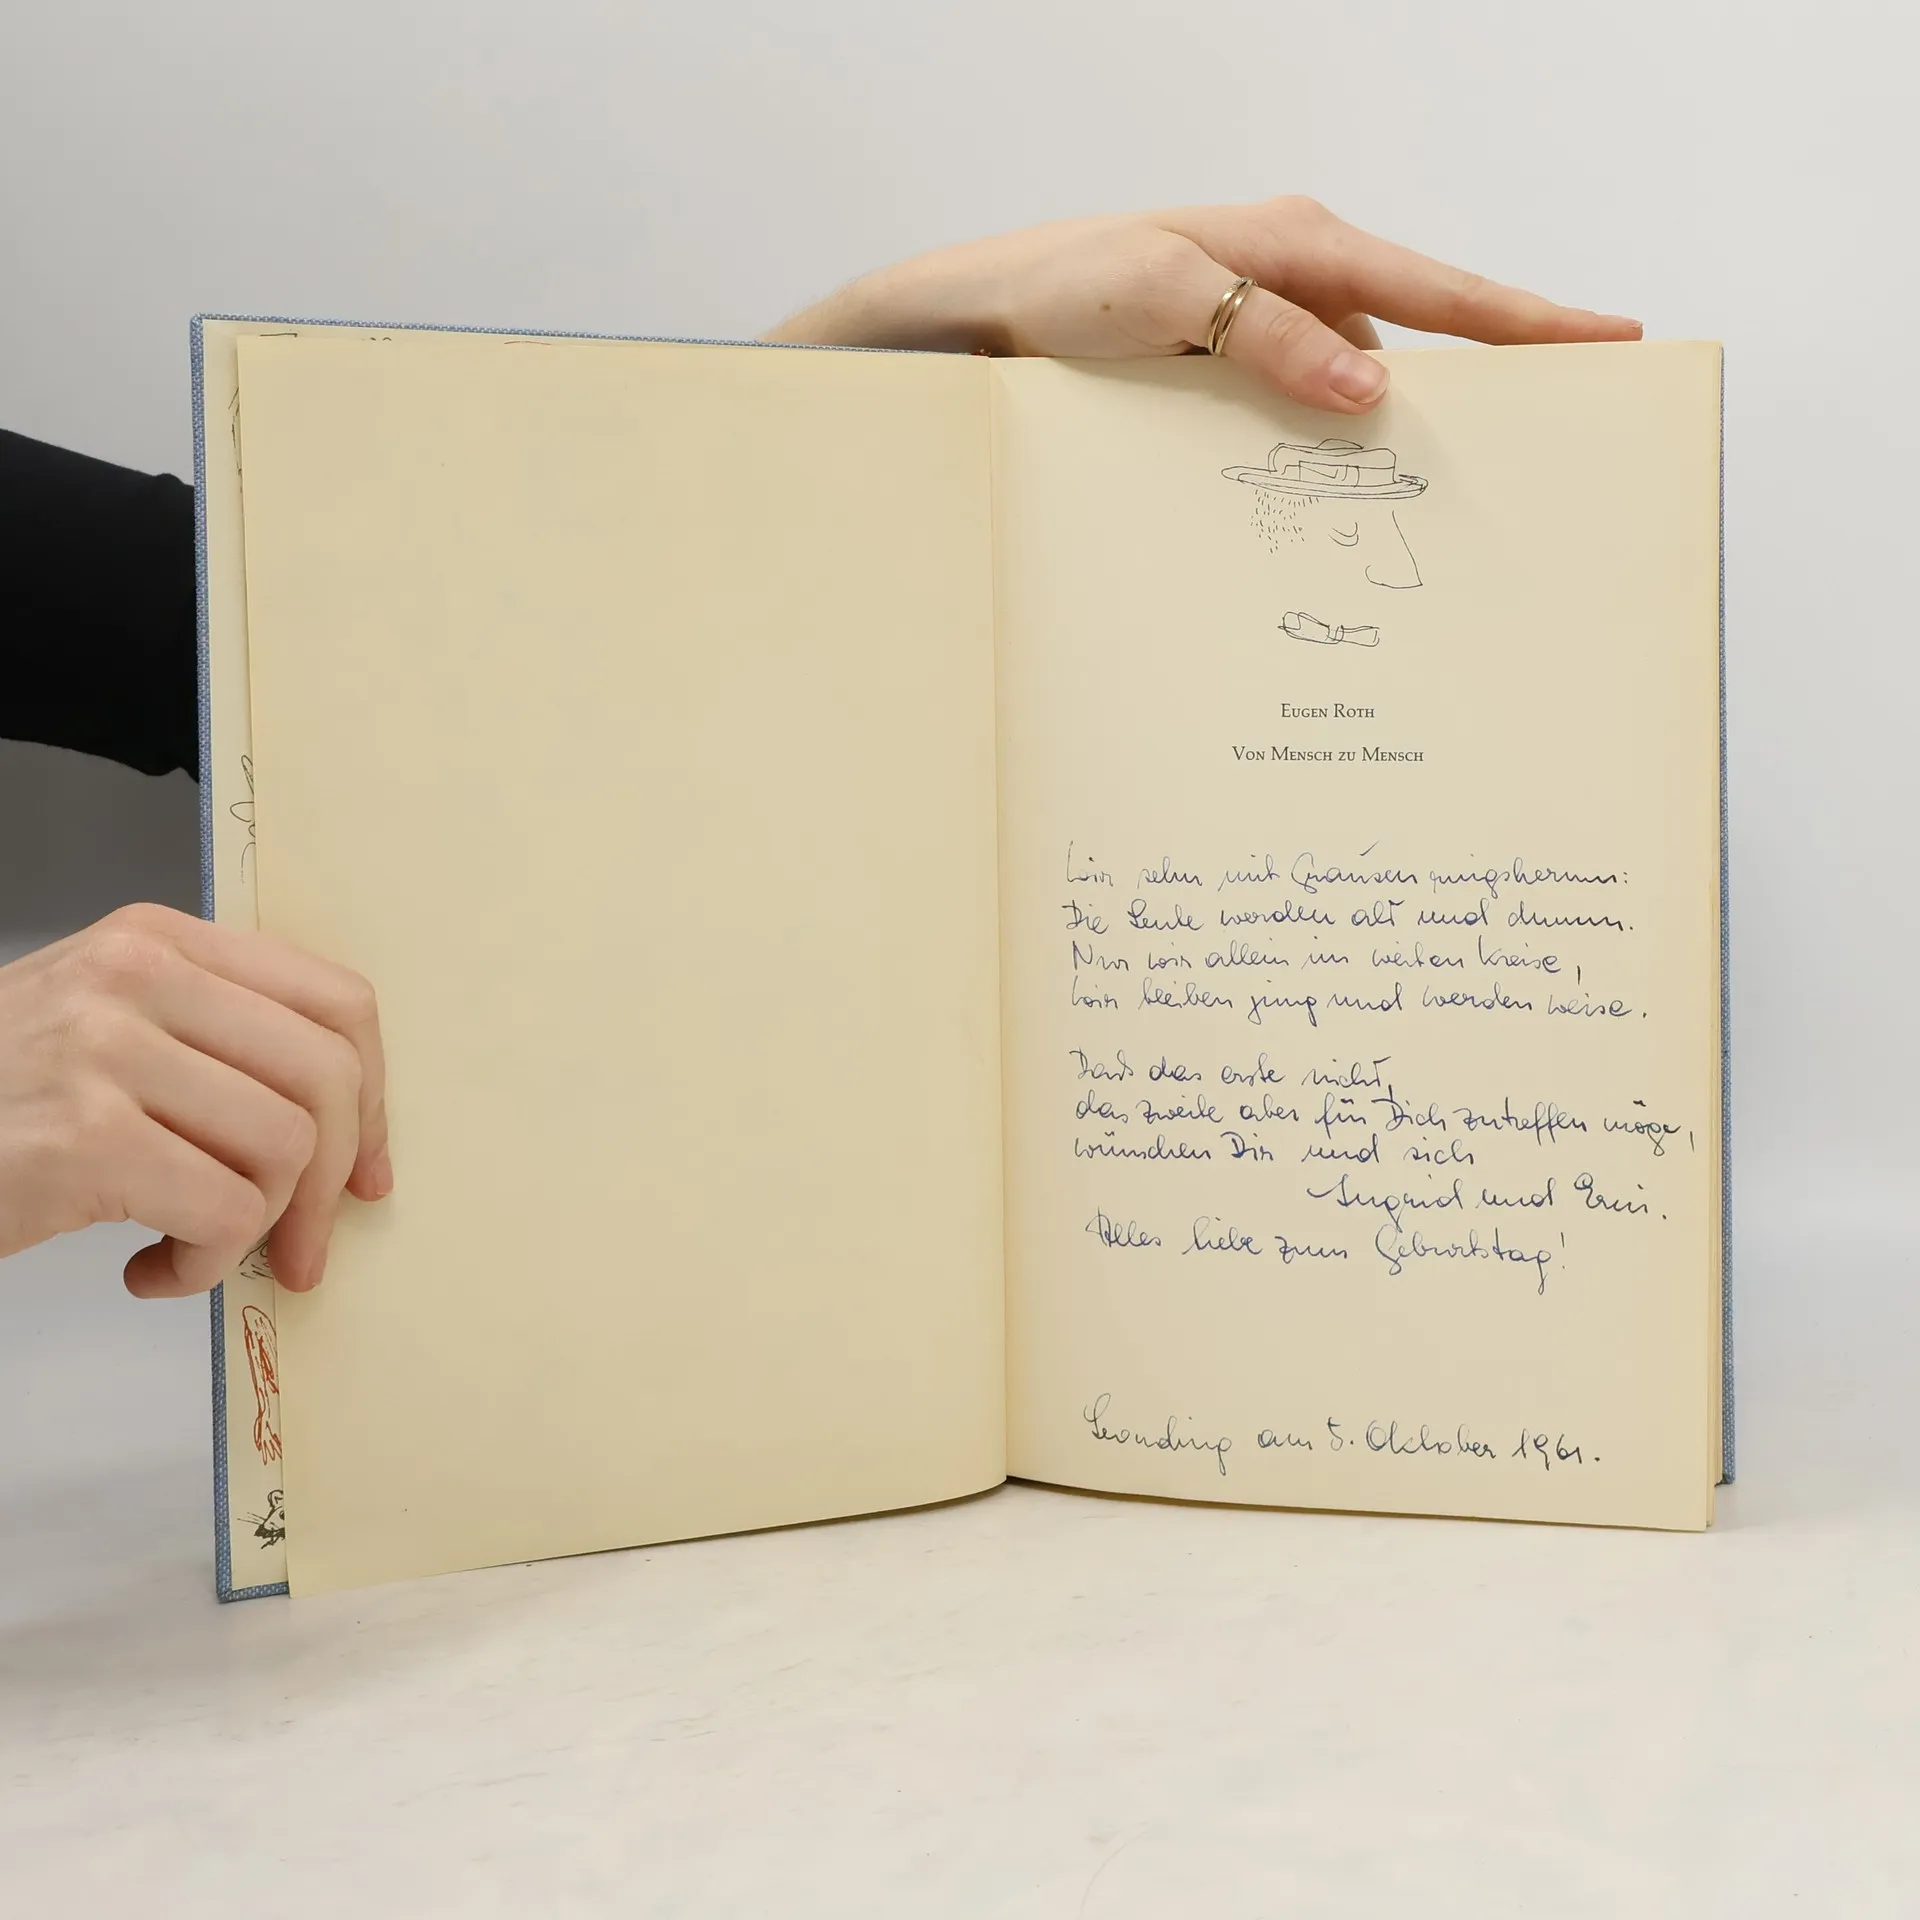 EUGEN ROTH
VON MENSCH ZU MENSCH
Wir sehn mit Grausen ringsherum:
Die Leute werden alt und dumm.
Nur wir allein im weiten Kreise,
Wir bleiben jung und werden weise.
Daß das erste nicht,
das zweite aber für Dich zutreffen möge,
wünschen Dir und sich
Ingrid und Erni.
Alles liebe zum Geburtstag!
Leonding am 5. Oktober 1961.